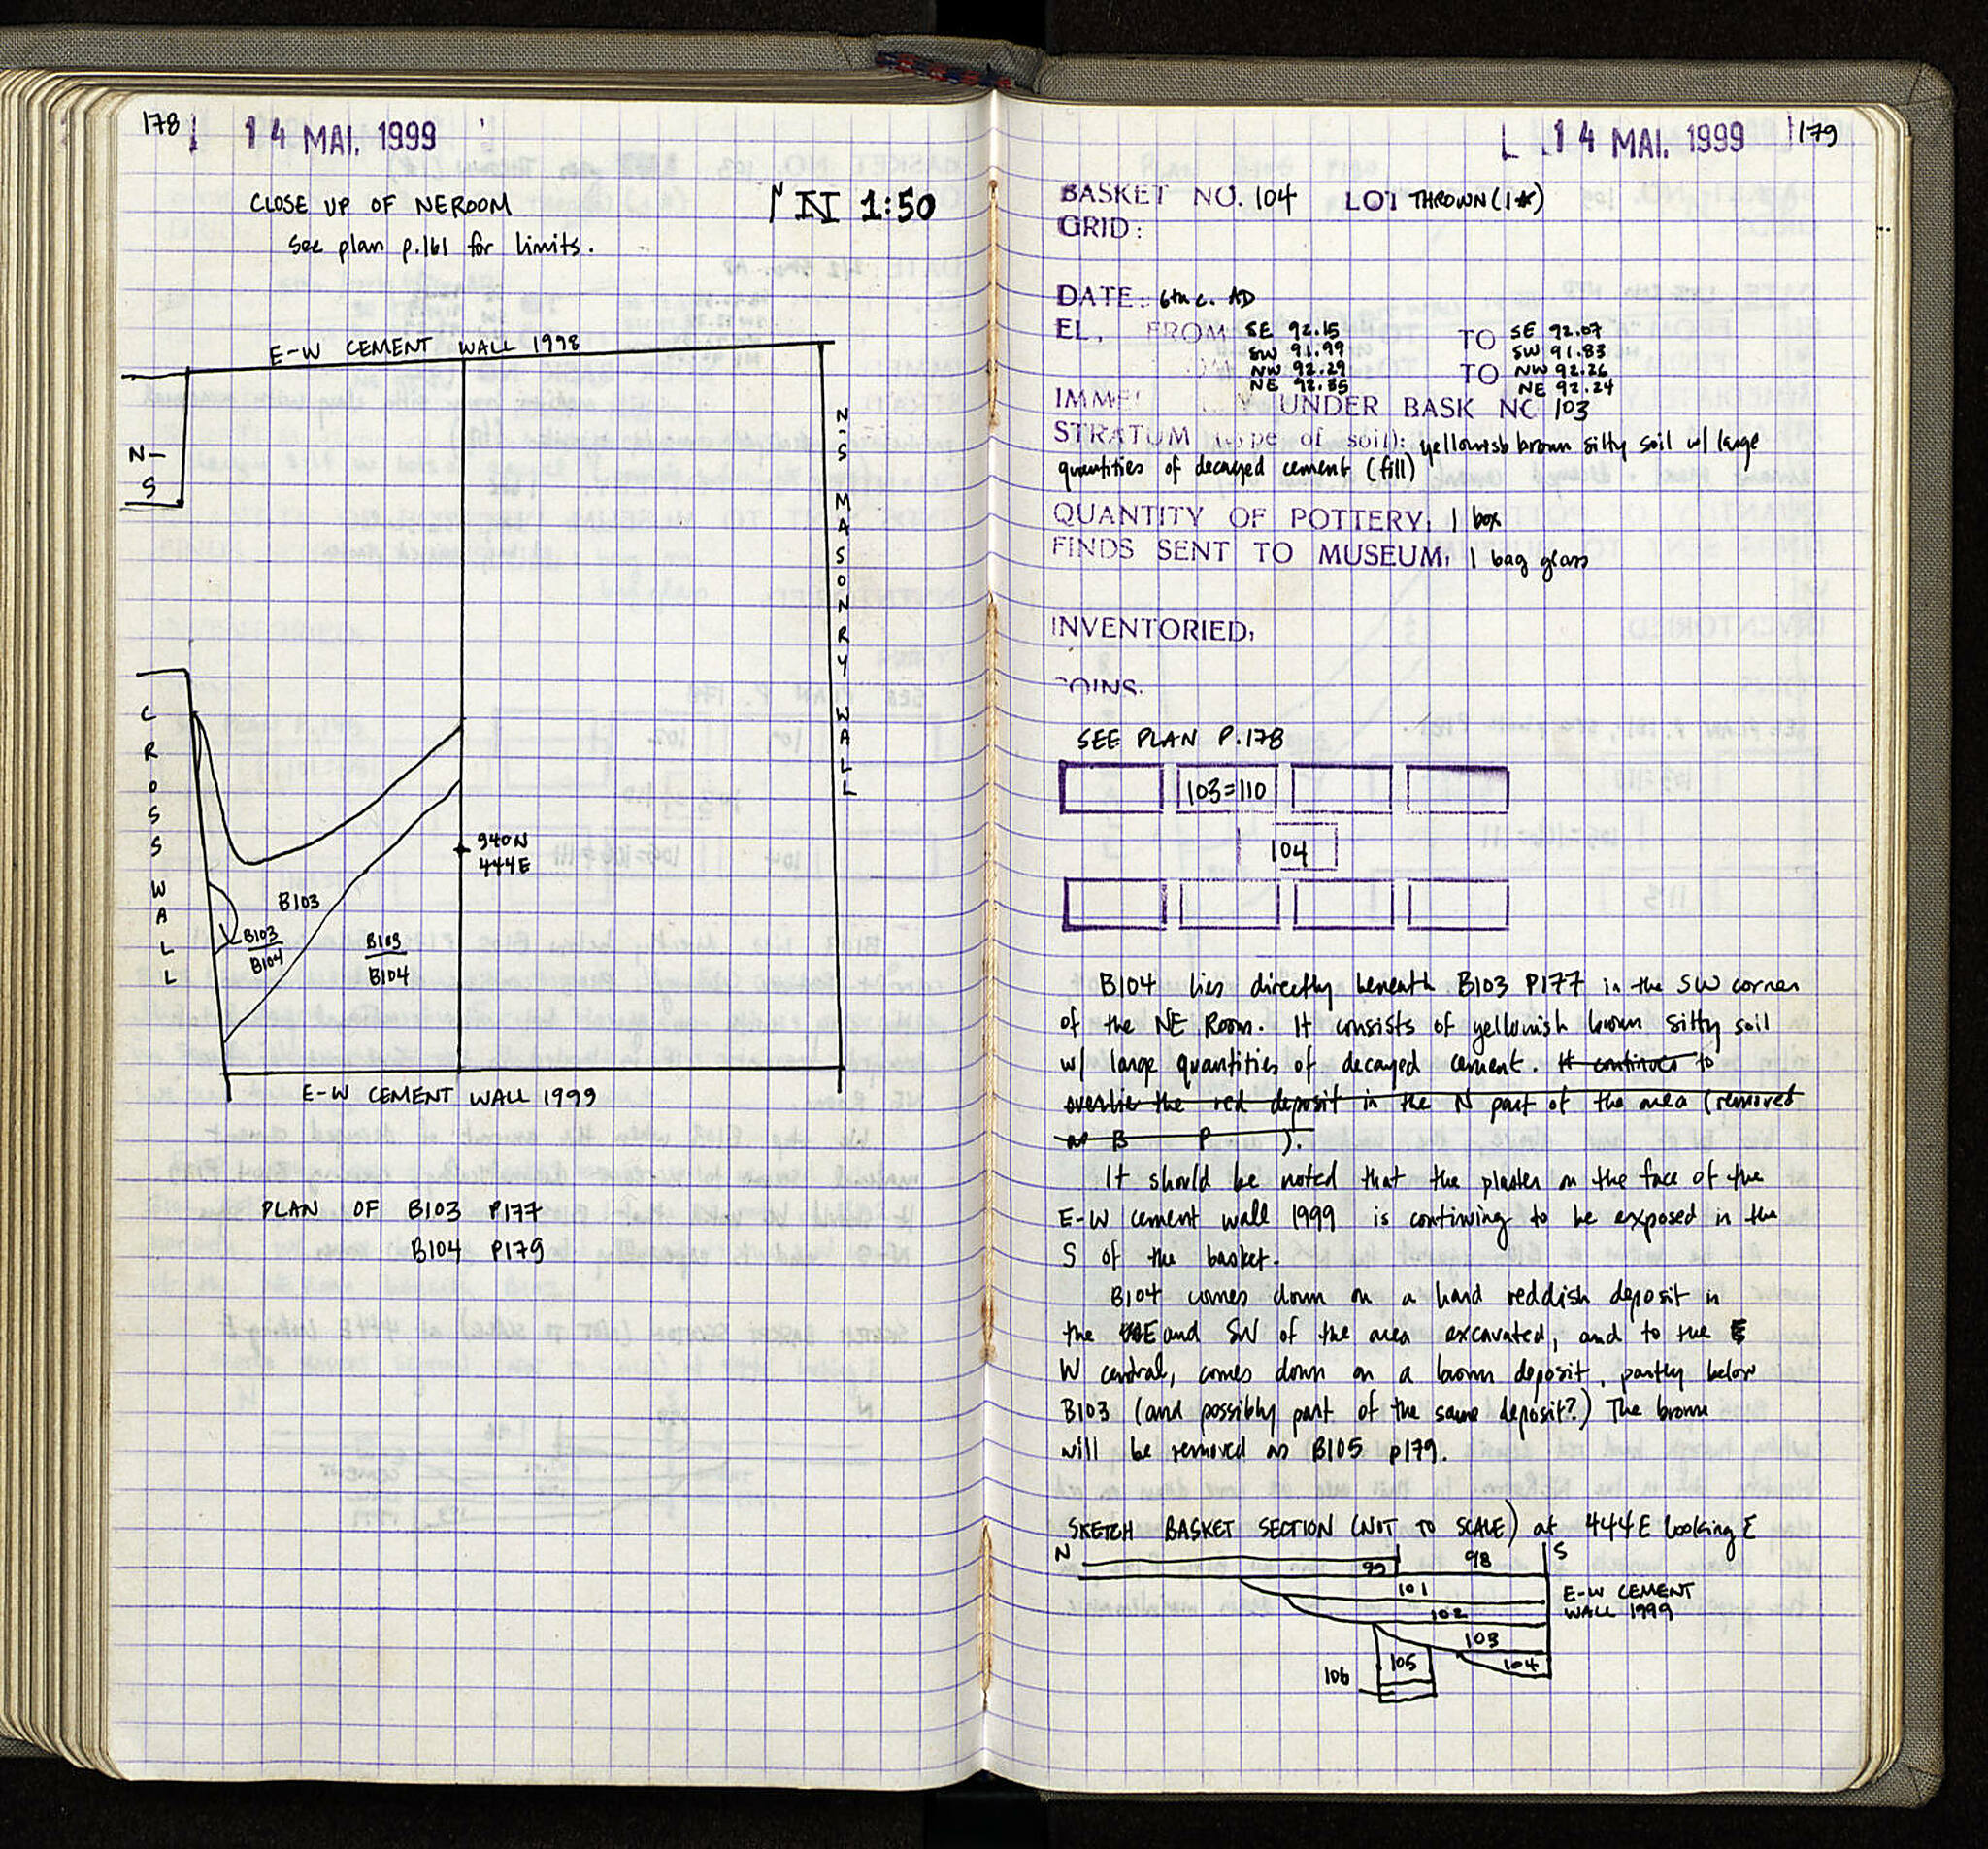 178
14 MAI. 1999
CLOSE UP OF NE ROOM
See plan p.161 for limits.
N 1:50
E-W CEMENT WALL 1998
N-S
N-S MASONRY WALL
CROSS WALL
940N
444E
B103
B103
B104
B103
B104
E-W CEMENT WALL 1999
PLAN OF B103 P177
B104 P179
14 MAI. 1999
179
BASKET NO. 104 LOT THROWN (1*)
GRID:
DATE: 6th c. AD
EL. FROM SE 92.15 TO SE 92.07
SW 91.99 SW 91.83
NW 92.29 TO NW 92.26
NE 92.35 NE 92.24
UNDER BASK NO 103
STRATUM (type of soil): yellowish brown silty soil w/ large
quantities of decayed cement (fill)
QUANTITY OF POTTERY: 1 box
FINDS SENT TO MUSEUM: 1 bag glass
INVENTORIED:
COINS:
SEE PLAN P.178
103=110
104
B104 lies directly beneath B103 P177 in the SW corner
of the NE Room. It consists of yellowish brown silty soil
w/ large quantities of decayed cement. It continues to
overlie the red deposit in the N part of the area (removed
as B P ).
It should be noted that the plaster on the face of the
E-W cement wall 1999 is continuing to be exposed in the
S of the basket.
B104 comes down on a hard reddish deposit in
the E and SW of the area excavated, and to the
W central, comes down on a brown deposit, partly below
B103 (and possibly part of the same deposit?) The brown
will be removed as B105 p179.
SKETCH BASKET SECTION (NOT TO SCALE) at 444E looking E
N 99 98 S
101
102
103
104
105
106
E-W CEMENT
WALL 1999